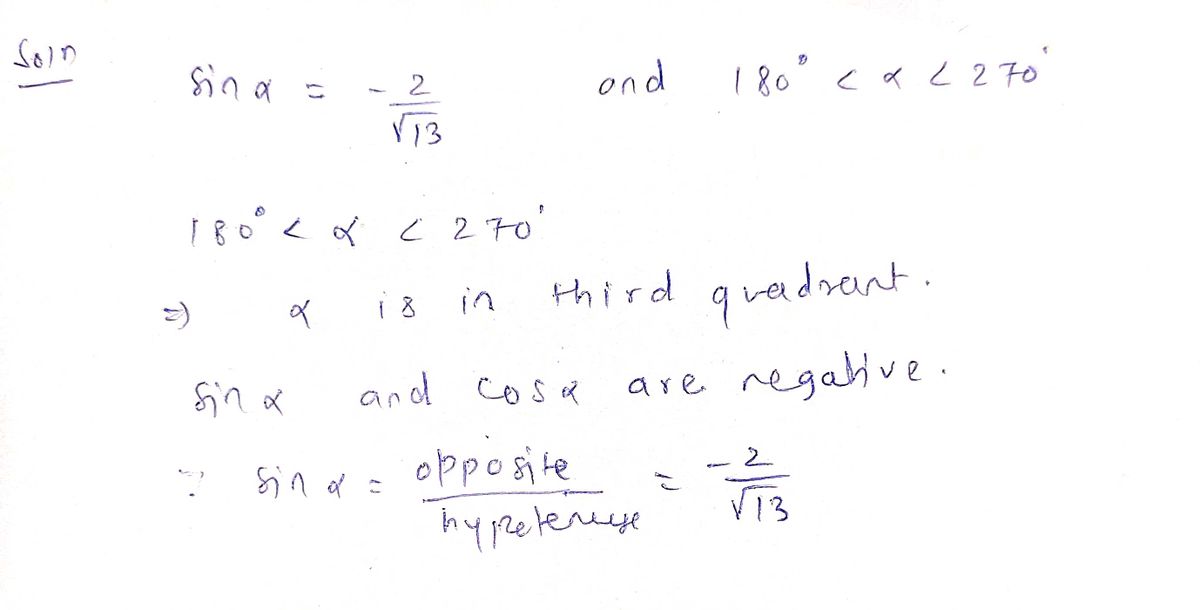 Soln
sin α = - 2/√13 and 180° < α < 270°
180° < α < 270°
⇒ α is in third quadrant.
sin α and cos α are negative.
∵ sin α = opposite/hypotenuse = -2/√13